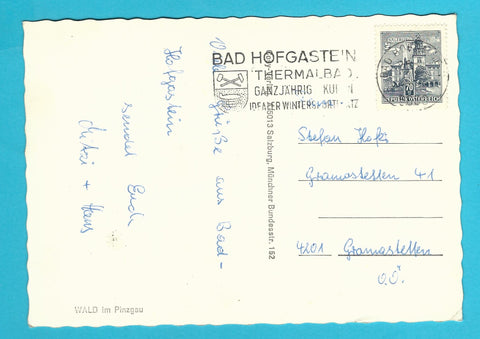 BAD HOFGASTEIN
THERMALBAD
GANZJÄHRIG KUR
IDEALER WINTERSP
REPUBLIK ÖSTERREICH
Viele Grüße aus Bad-
Hofgastein
sendet Euch
+ Hans
5013 Salzburg, Münchner Bundesstr. 152
Stefan
Gramastetten 41
4201 Gramastetten
O.Ö.
WALD im Pinzgau